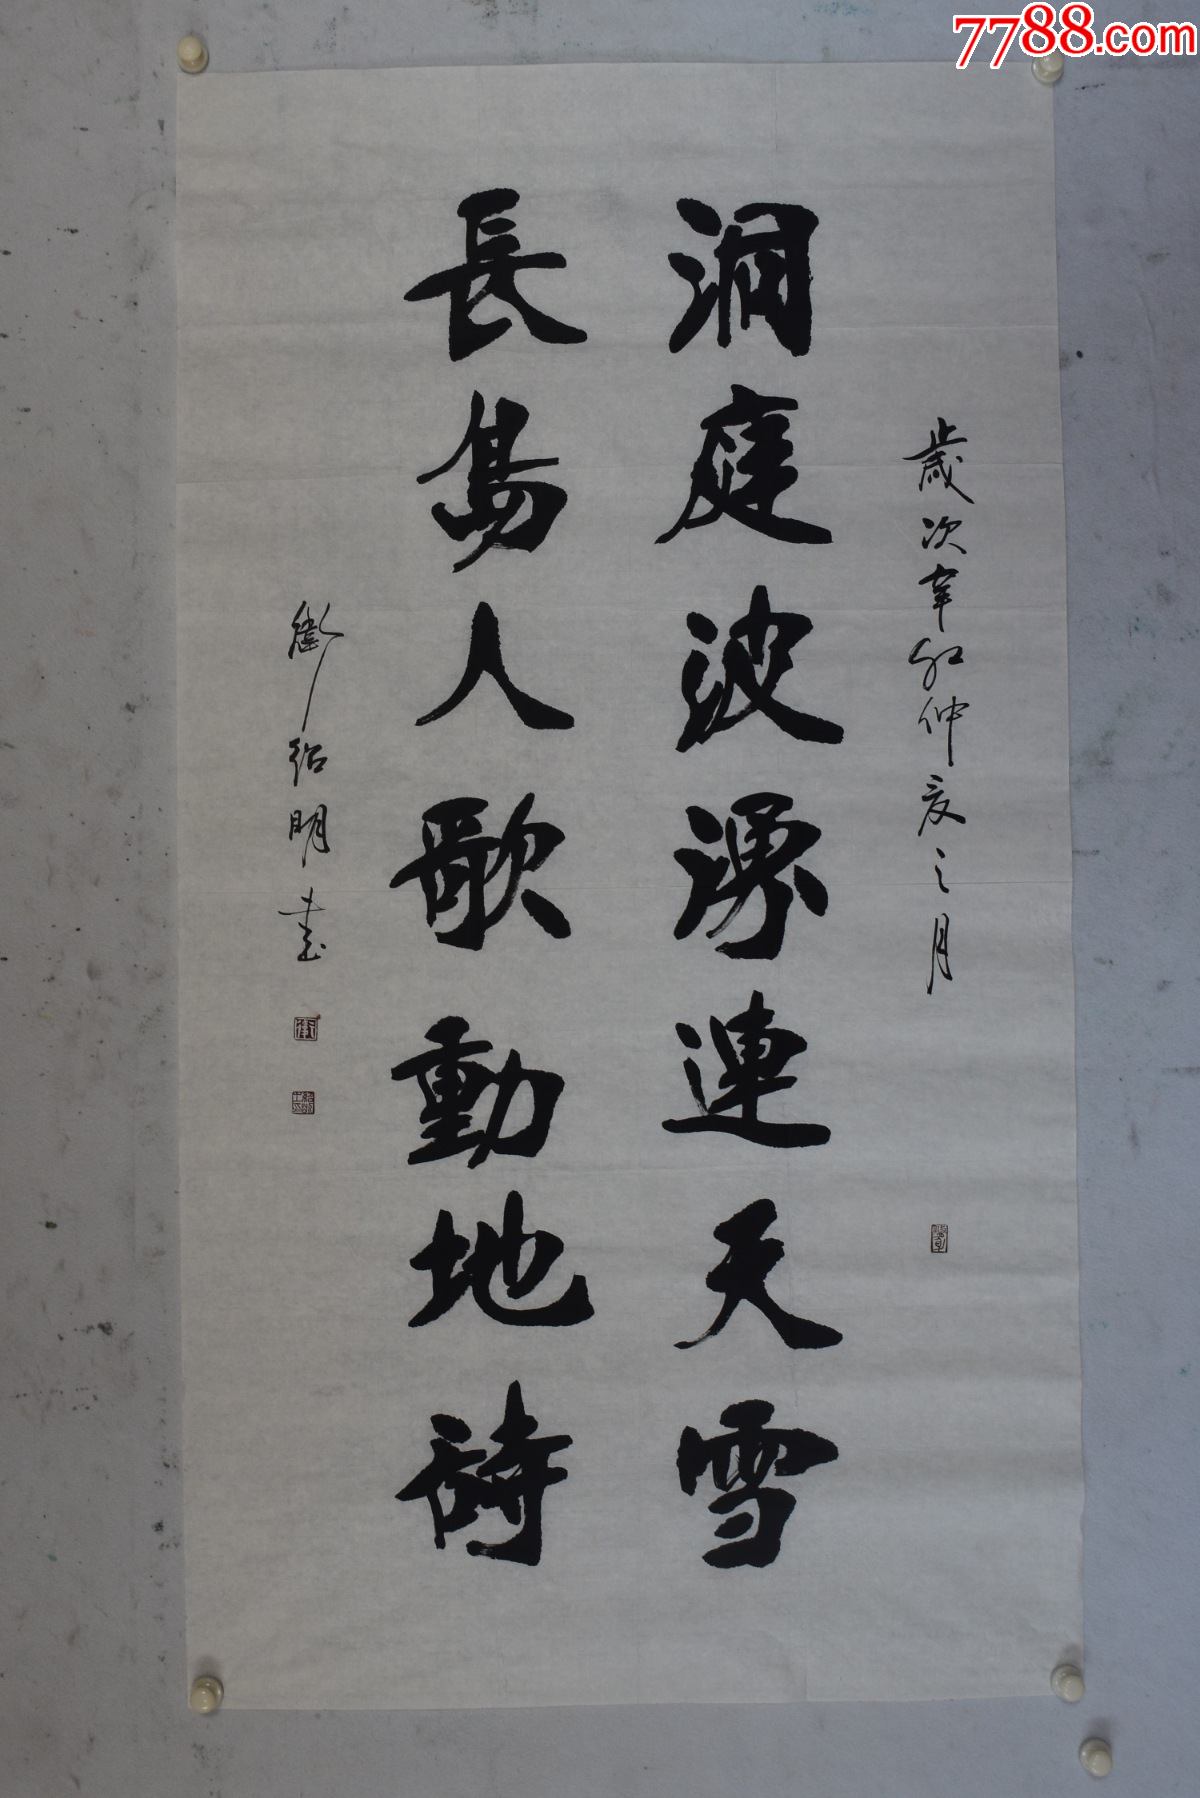 7788.com
歲次辛卯仲夏之月
洞庭波湧連天雪
長島人歌動地詩
衛紹明書